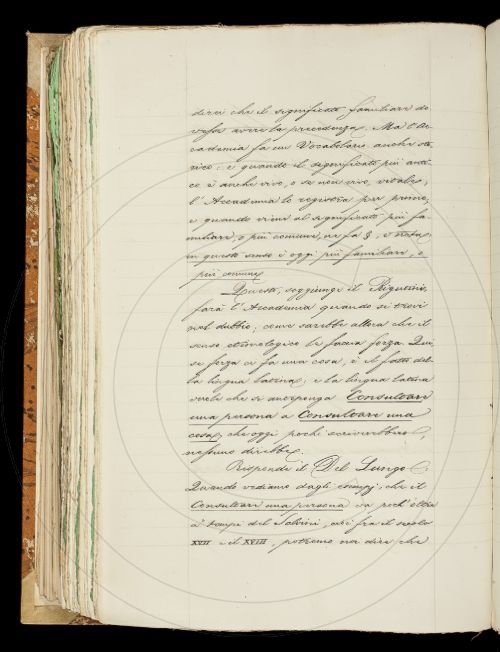 direi che il significato familiare do
vesse avere la precedenza. Ma l'Ac
cademia fa un Vocabolario anche sto
rico: e quando il significato più anti
co è anche vivo, o se non vivo, vitale,
l'Accademia lo registra per primo,
e quando viene al significato più fa
miliare, o più comune, ne fa §, e nota
in questo senso è oggi più familiare, o
più comune.
Questo, soggiunge il Rigutini,
farà l'Accademia quando si trovi
nel dubbio; come sarebbe allora che il
senso etimologico le faccia forza. Qui,
se forza ci fa una cosa, è il fatto del
la lingua latina, e la lingua latina
vuole che si anteponga Consultare
una persona a Consultare una
cosa, che oggi pochi scriverebbero,
nessuno direbbe.
Risponde il Del Lungo:
Quando vediamo dagli esempj, che il
Consultare una persona va poch'oltre
a' tempi del Salvini, cioè fra il secolo
XVII e il XVIII, potremo noi dire che